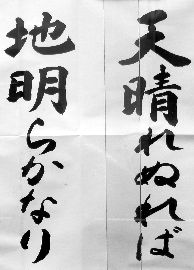 天晴れぬれば
地明らかなり